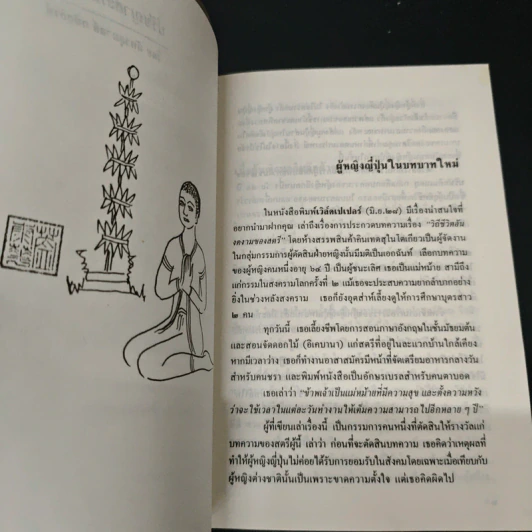 ผู้หญิงญี่ปุ่นในบทบาทใหม่
ในหนังสือพิมพ์เวิล์ดเปเปอร์ (มิ.ย.๒๘) มีเรื่องน่าสนใจที่
อยากนำมาฝากคุณ เล่าถึงเรื่องการประกวดบทความเรื่อง "วิถีชีวิตอัน
งดงามของสตรี" โดยห้างสรรพสินค้าคินเทตสุในโตเกียวเป็นผู้จัดงาน
ในกลุ่มกรรมการผู้ตัดสินฝ่ายหญิงนั้นมีมติเป็นเอกฉันท์ เลือกบทความ
ของผู้หญิงคนหนึ่งอายุ ๖๔ ปี เป็นผู้ชนะเลิศ เธอเป็นแม่หม้าย สามีถึง
แก่กรรมในสงครามโลกครั้งที่ ๒ แม้เธอจะประสบความยากลำบากอย่าง
ยิ่งในช่วงหลังสงคราม เธอก็ยังอุตส่าห์เลี้ยงดูให้การศึกษาบุตรสาว
๒ คน
ทุกวันนี้ เธอเลี้ยงชีพโดยการสอนภาษาอังกฤษในชั้นมัธยมต้น
และสอนจัดดอกไม้ (อีเคบานา) แก่สตรีที่อยู่ในละแวกบ้านใกล้เคียง
หากมีเวลาว่าง เธอก็ทำงานอาสาสมัครมีหน้าที่จัดเตรียมอาหารกลางวัน
สำหรับคนชรา และพิมพ์หนังสือเป็นอักษรเบรลสำหรับคนตาบอด
เธอเล่าว่า "ข้าพเจ้าเป็นแม่หม้ายที่มีความสุข และตั้งความหวัง
ว่าจะใช้เวลาในแต่ละวันทำงานให้เต็มความสามารถไปอีกหลาย ๆ ปี"
ผู้ที่เขียนเล่าเรื่องนี้ เป็นกรรมการคนหนึ่งที่ตัดสินให้รางวัลแก่
บทความของสตรีผู้นี้ เล่าว่า ก่อนที่จะตัดสินบทความ เธอคิดว่าเหตุผลที่
ทำให้ผู้หญิงญี่ปุ่นไม่ค่อยได้รับการยอมรับในสังคมโดยเฉพาะเมื่อเทียบกับ
ผู้หญิงต่างชาตินั้นเป็นเพราะขาดความตั้งใจ แต่เธอคิดผิดไป